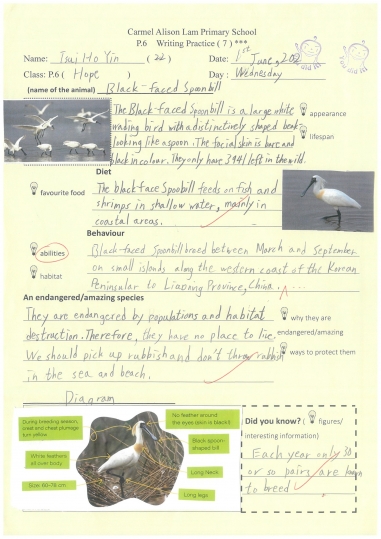 Carmel Alison Lam Primary School
P.6 Writing Practice ( 7 ) ***
Name: Tsui Ho Yin ( 22 ) Date: 1st June, 202
Class: P.6 ( Hope ) Day : Wednesday
(name of the animal) Black-faced Spoonbill
The Black-faced Spoonbill is a large white
wading bird with a distinctively shaped beak
looking like a spoon. The facial skin is bare and
black in colour. They only have 3941 left in the wild.
appearance
lifespan
Diet
favourite food
The black face Spoobill feeds on fish and
shrimps in shallow water, mainly in
coastal areas.
Behaviour
abilities
habitat
Black-faced Spoonbill breed between March and September
on small islands along the western coast of the Korean
Peninsular to Liaoning Province, China. ...
An endangered/amazing species
They are endangered by populations and habitat
destruction. Therefore, they have no place to live.
We should pick up rubbish and don't throw rubbish
in the sea and beach.
why they are
endangered/amazing
ways to protect them
Diagram
During breeding season,
crest and chest plumage
turn yellow
White feathers
all over body
Size: 60-78 cm
No feather around
the eyes (skin is black!)
Black spoon-
shaped bill
Long Neck
Long legs
Did you know? ( figures/
interesting information)
Each year only 30
or so pairs are
to breed